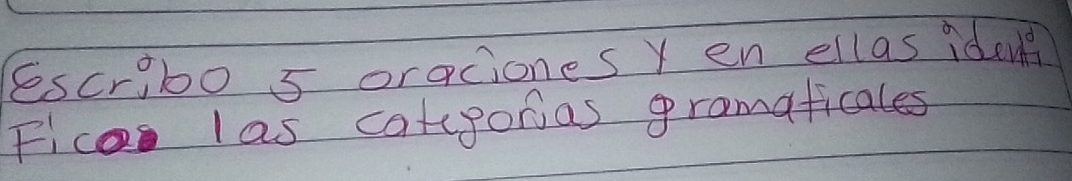 Escribo 5 oraciones y en ellas identi
Ficas las categorías gramaticales